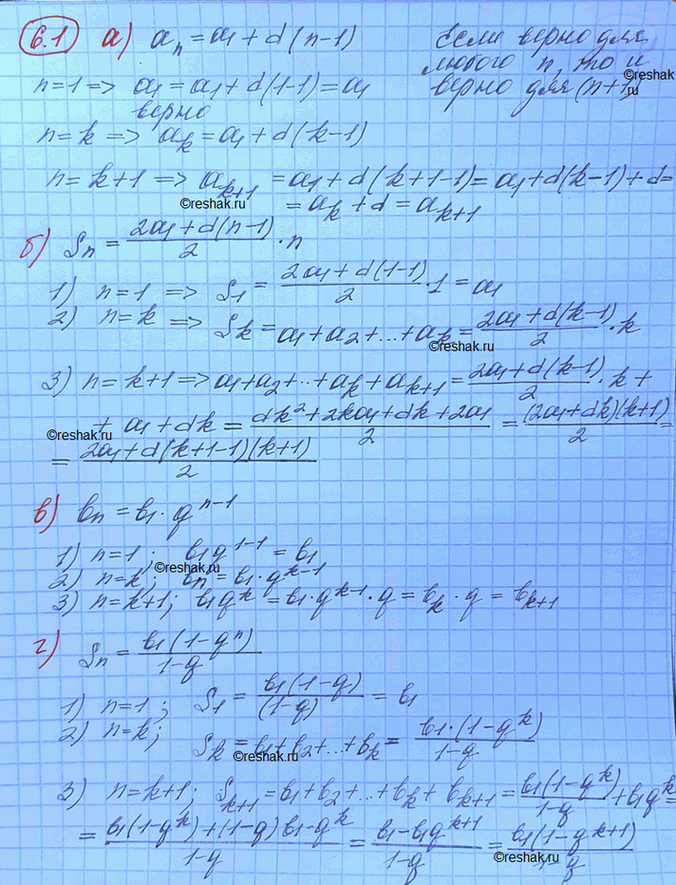 6.1 а) aₙ = a₁ + d(n-1) Если верно для
любого n, то и
©reshak.ru
n=1 => a₁ = a₁ + d(1-1) = a₁ верно для (n+1)
верно
n=k => aₖ = a₁ + d(k-1)
n=k+1 => aₖ₊₁ = a₁ + d(k+1-1) = a₁ + d(k-1) + d =
©reshak.ru = aₖ + d = aₖ₊₁
б) Sₙ = (2a₁ + d(n-1))/2 · n
1) n=1 => S₁ = (2a₁ + d(1-1))/2 · 1 = a₁
2) n=k => Sₖ = a₁ + a₂ + ... + aₖ = (2a₁ + d(k-1))/2 · k
©reshak.ru
3) n=k+1 => a₁ + a₂ + .. + aₖ + aₖ₊₁ = (2a₁ + d(k-1))/2 · k +
+ a₁ + dk = (dk² + 2ka₁ + dk + 2a₁)/2 = ((2a₁ + dk)(k+1))/2 =
©reshak.ru
= (2a₁ + d(k+1-1)(k+1))/2
в) bₙ = b₁ · qⁿ⁻¹
1) n=1; b₁q¹⁻¹ = b₁
©reshak.ru
2) n=k; bₙ = b₁ · qᵏ⁻¹
3) n=k+1; b₁qᵏ = b₁ · qᵏ⁻¹ · q = bₖ · q = bₖ₊₁
г) Sₙ = (b₁(1-qⁿ))/(1-q)
1) n=1; S₁ = (b₁(1-q))/((1-q)) = b₁
2) n=k; Sₖ = b₁ + b₂ + ... + bₖ = (b₁·(1-qᵏ))/(1-q)
©reshak.ru
3) n=k+1; Sₖ₊₁ = b₁ + b₂ + ... + bₖ + bₖ₊₁ = (b₁(1-qᵏ))/(1-q) + b₁qᵏ =
= (b₁(1-qᵏ) + (1-q)b₁·qᵏ)/(1-q) = (b₁ - b₁qᵏ⁺¹)/(1-q) = (b₁(1-qᵏ⁺¹))/(1-q)
©reshak.ru